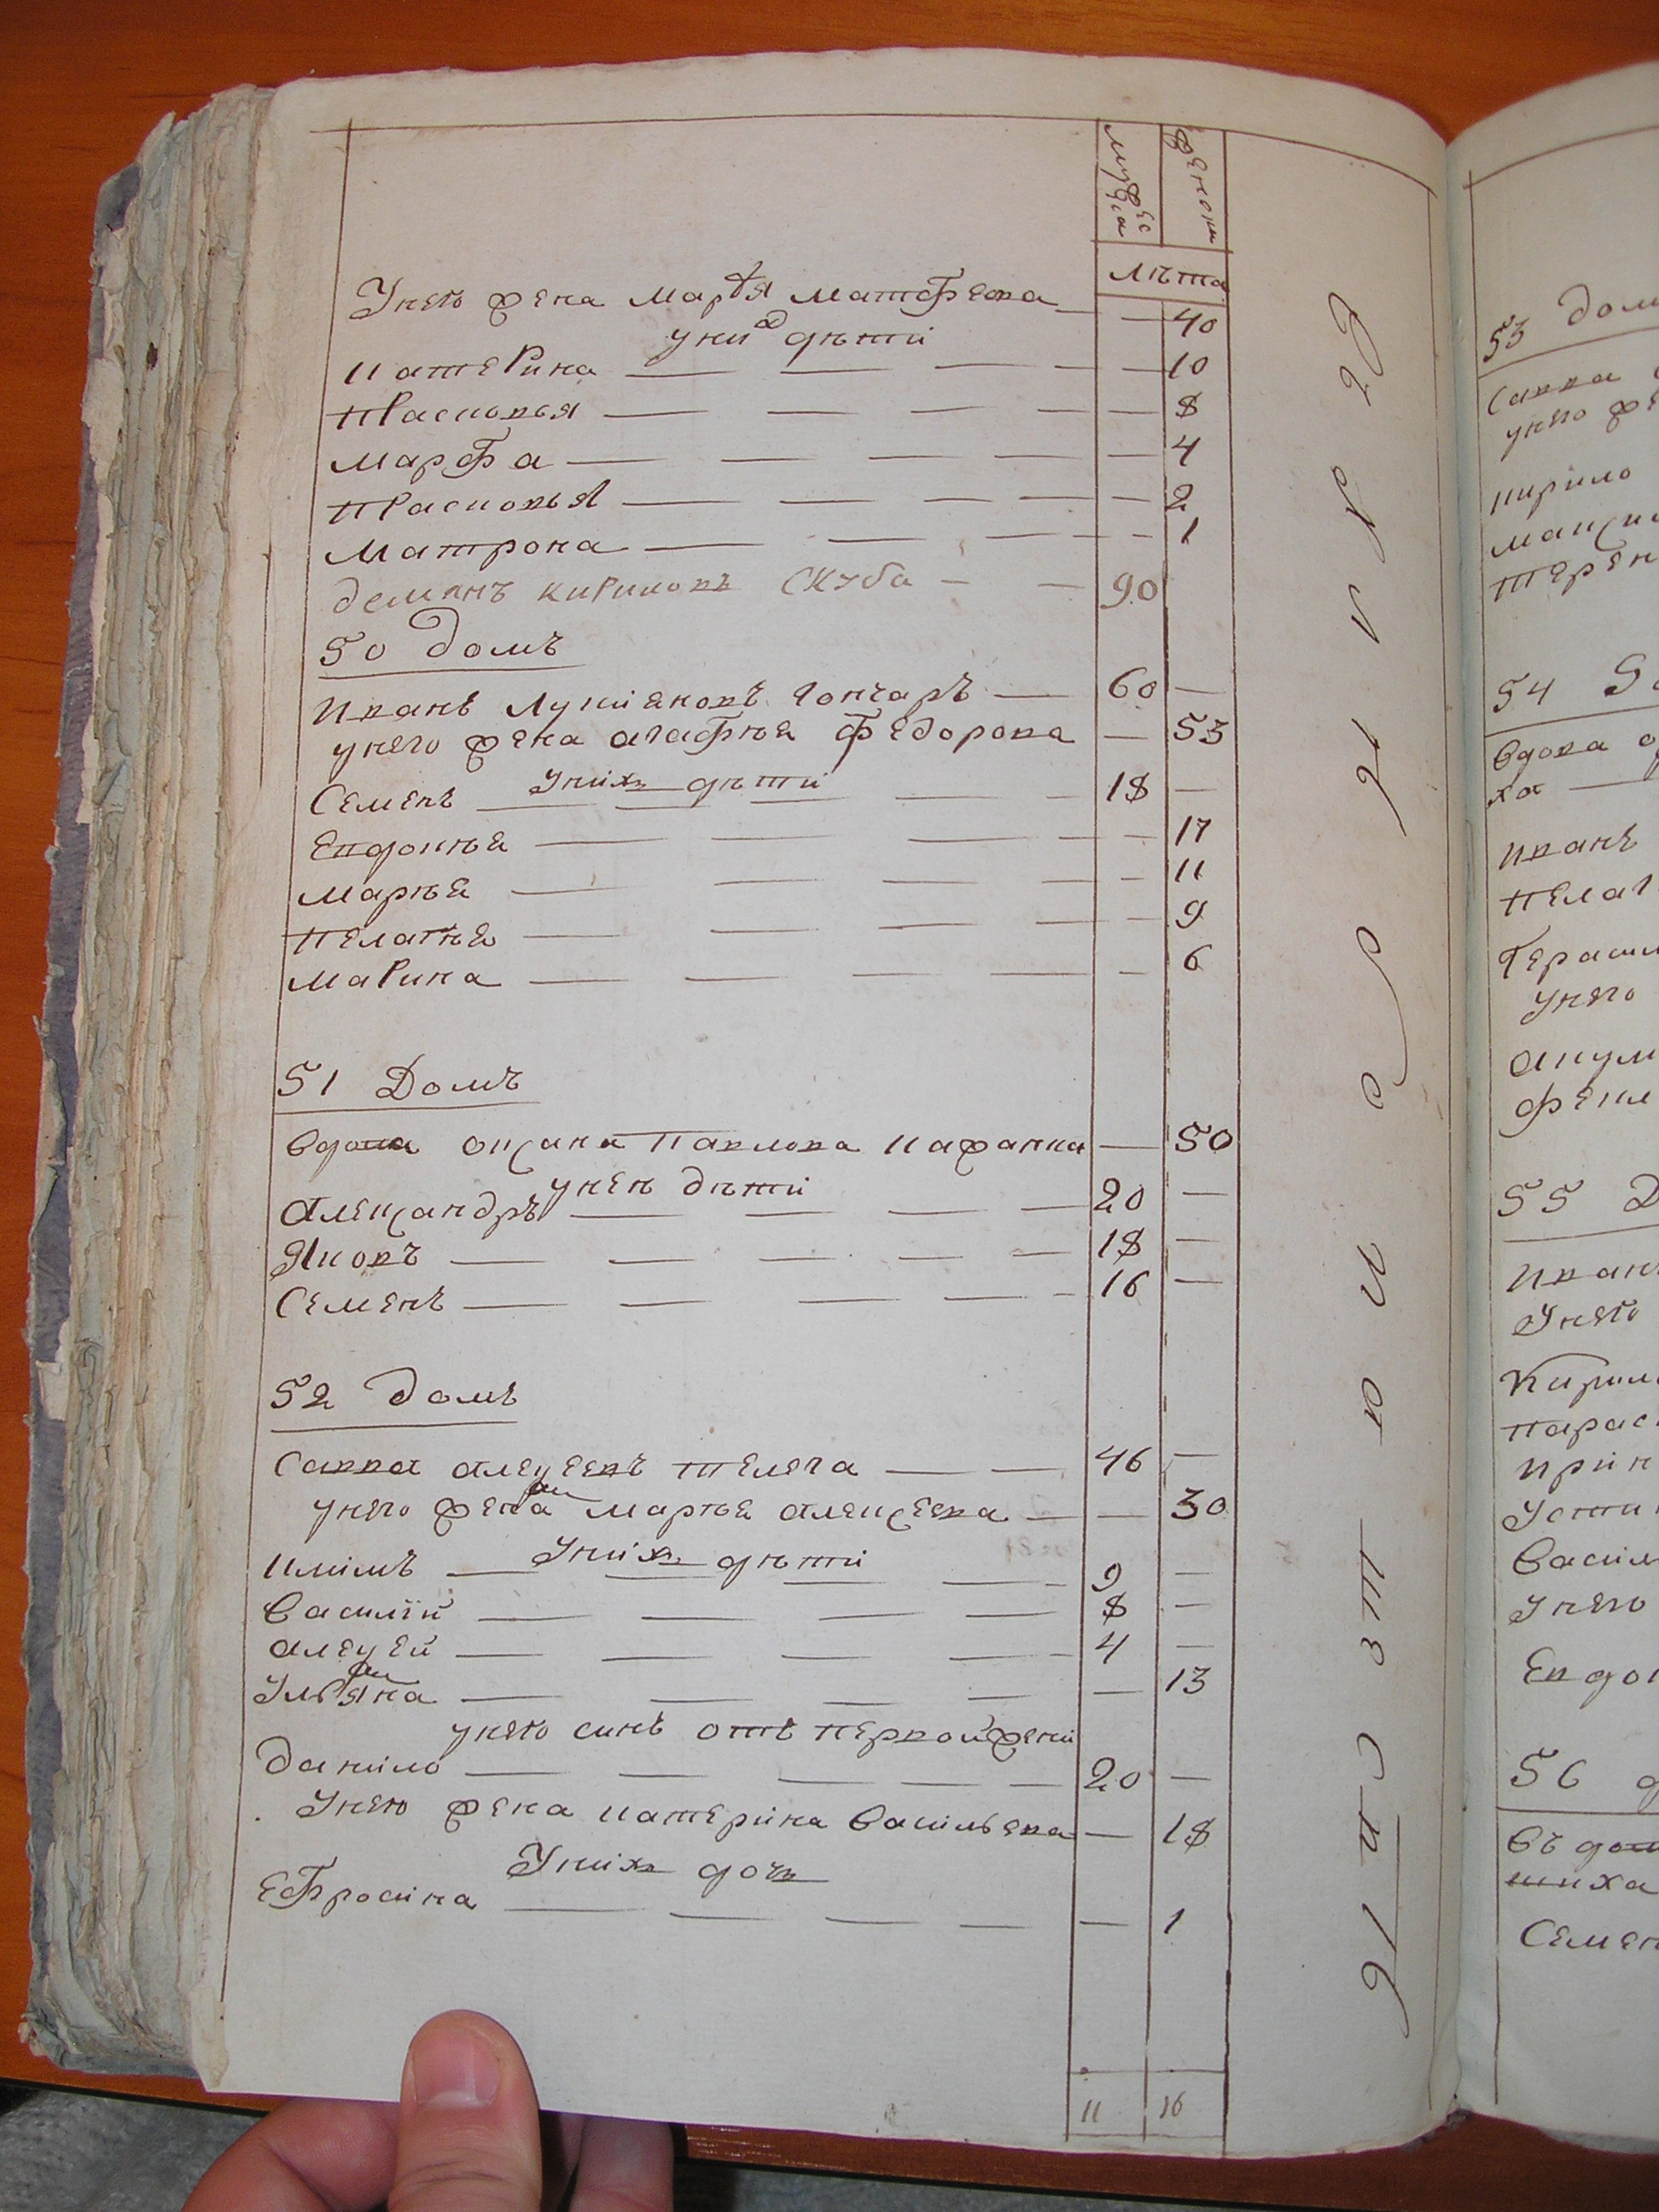 мужеска женски
лѣта
У него жена Марѳя Матфеева — — 40
у них дѣти
Катерина — — 10
Прасковья — — 8
Марфа — — 4
Прасковья — — 2
Матрона — — 1
Демянъ Кириловъ Скуба — 90
50 Домъ
Иванъ Лукіяновъ Гончаръ — 60 —
у него жена Агафѣя Федорова — 53
у нихъ дѣти
Семенъ — 18 —
Евдокѣя — — 17
Марѣя — — 11
Пелагѣя — — 9
Марина — — 6
51 Домъ
Вдова Оксана Павлова — 50
у неѣ дѣти
Александръ — 20 —
Яковъ — 18 —
Семенъ — 16 —
52 Домъ
Савва Алеѯеевъ Телега — 46 —
у него жена Марѣя Алексеева — — 30
у нихъ дѣти
Клімъ — 9 —
Василій — 8 —
Алеѯей — 4 —
Ульяна — — 13
у него синъ отъ первой жени
Даніло — 20 —
У него жена Катеріна Васільева — 18
У нихъ дочь
Ефросіна — — 1
11 16
53 Дом
Савва
у него же
Кирило
Макси
Терен
54
Вдова
ха —
Иванъ
Пелаг
Герасим
У него
Акули
Фекл
55 Д
Иван
У него
Кирил
Парас
Ирин
Усти
Васил
У него
Евдо
56
Семен